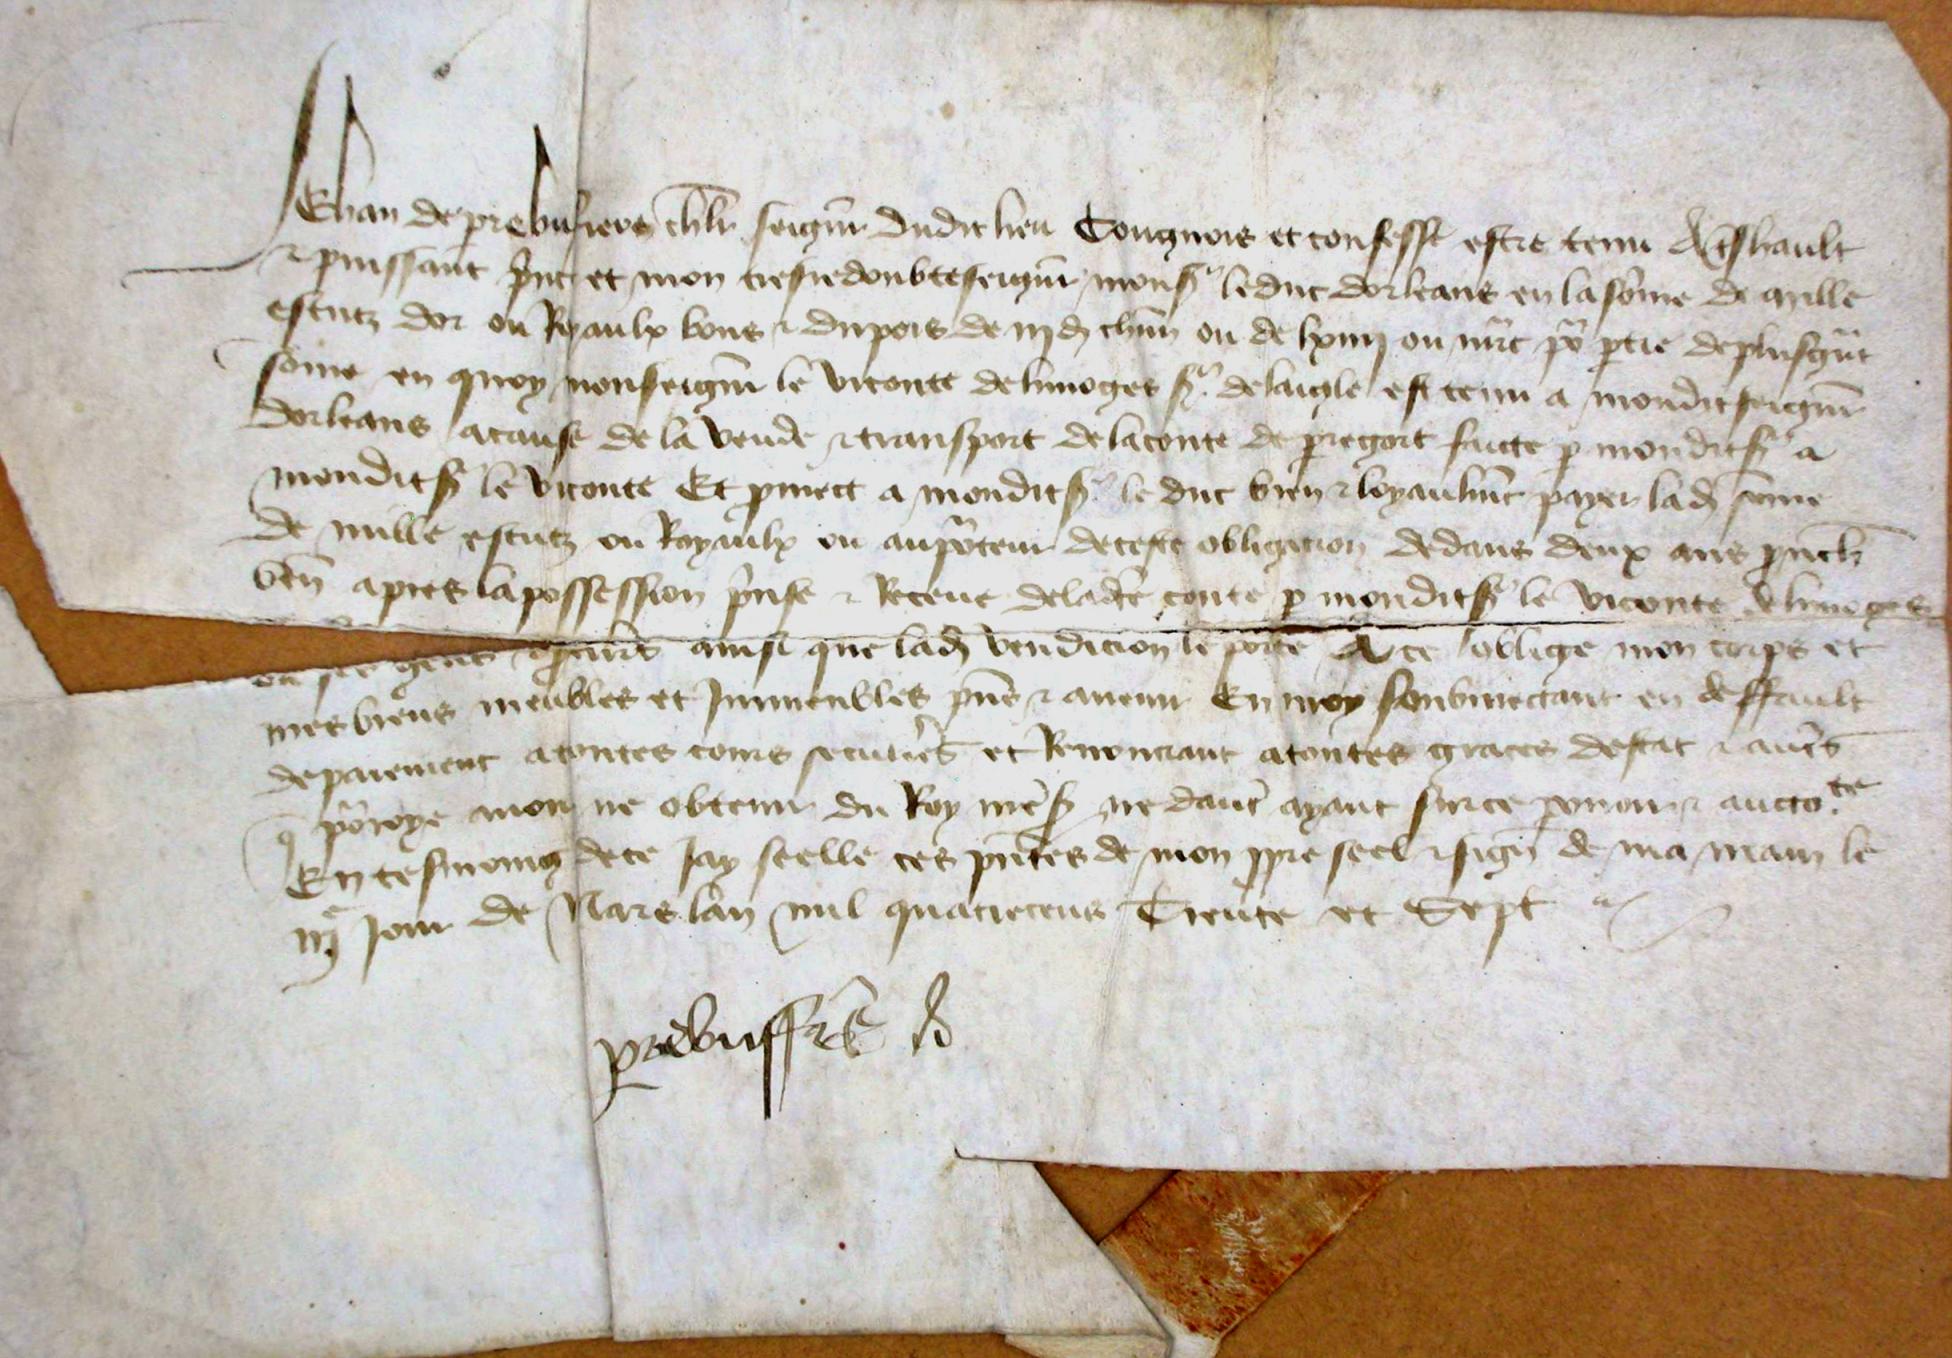 Jehan de prebuffiere chlr seigneur dudit lieu Congnois et confesse estre tenu A tshault
& puissant prince et mon tresredoubte seigneur monsr le duc dorleans en la some de mille
escutz dor ou Royaulx bons & du pois de iij d chun ou de lxiiij ou marc por ptie de plus gnt
some en quoy monseigneur le viconte de limoges sr de laigle est tenu a mondit seigneur
dorleans a cause de la vende & transport de la conte de pregort faicte p mondit sr a
mondit sr le viconte Et pmect a mondit sr le duc bien & loyaulmt payer lad some
de mille escutz ou Royaulx ou au porteur de ceste obligacion dedans deux ans prouch
ven apres la possession prinse & Receue de ladte conte p mondit sr le viconte de limoges
ou ses gens ainsi que lad vendicion le porte A ce oblige mon corps et
mes biens meubles et Immeubles pns & avenir En moy soubmectant en deffault
de paiement a toutes cours seculieres et Renonciant a toutes graces destat & autres
q porroye avoir ne obtenir du Roy mesr ne dautre ayant sur ce povoir & aucto.te
En tesmoing de ce Jay seelle ces pntes de mon ppre seel & signe de ma main le
iije Jour de Mars lan mil quatrecens Trente et Sept
prebuffiere